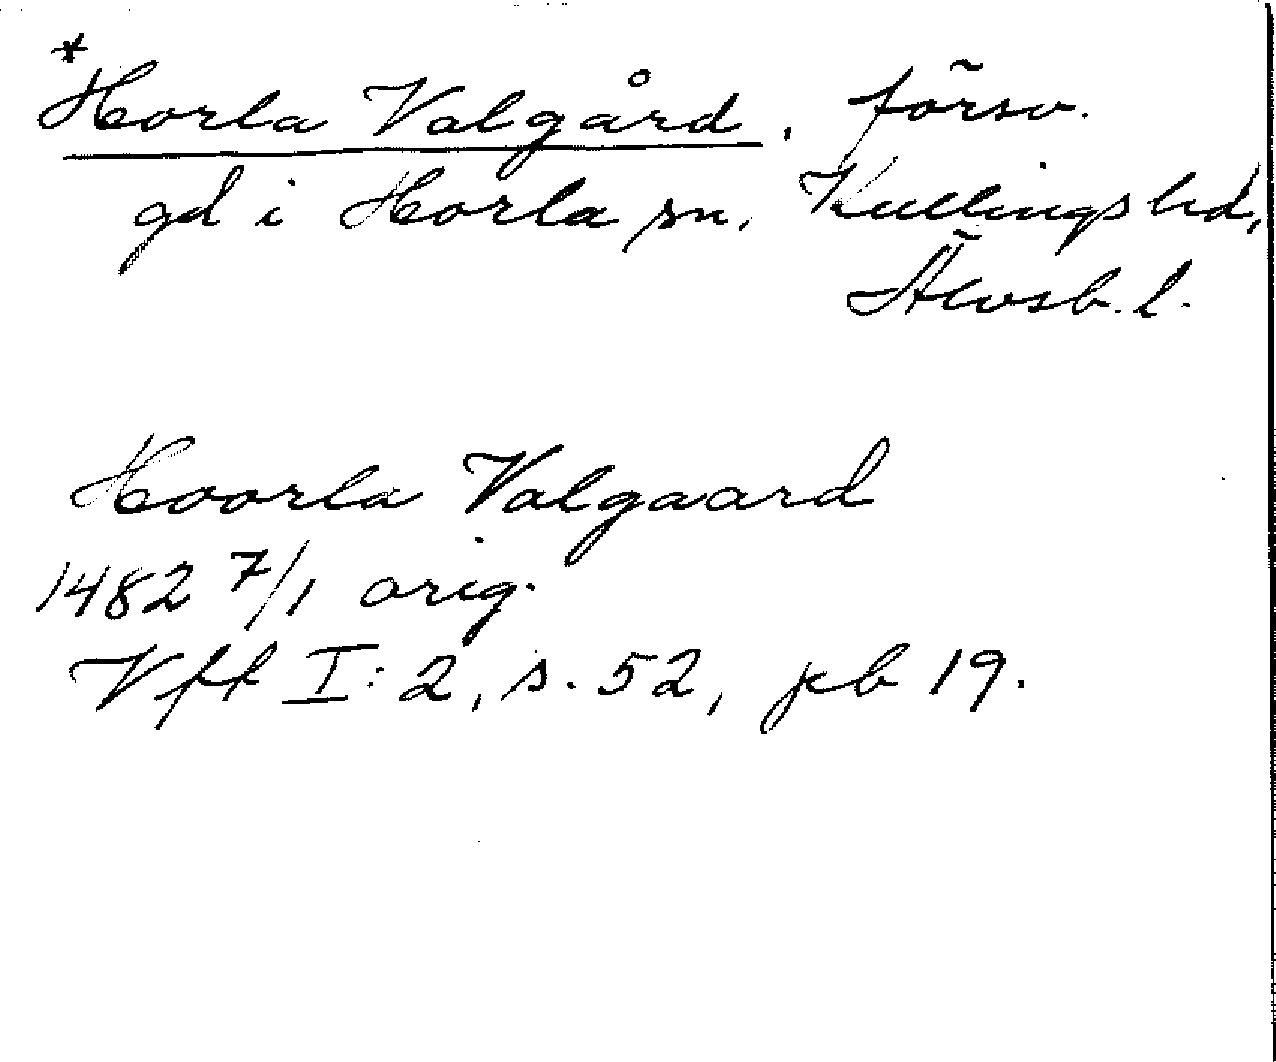 *Horla Valgård, försv.
gd i Horla sn, Kullings hd,
Älvsb. l.
Hoorla Valgaard
1482 7/1 orig.
Vft I:2, s. 52, pb 19.